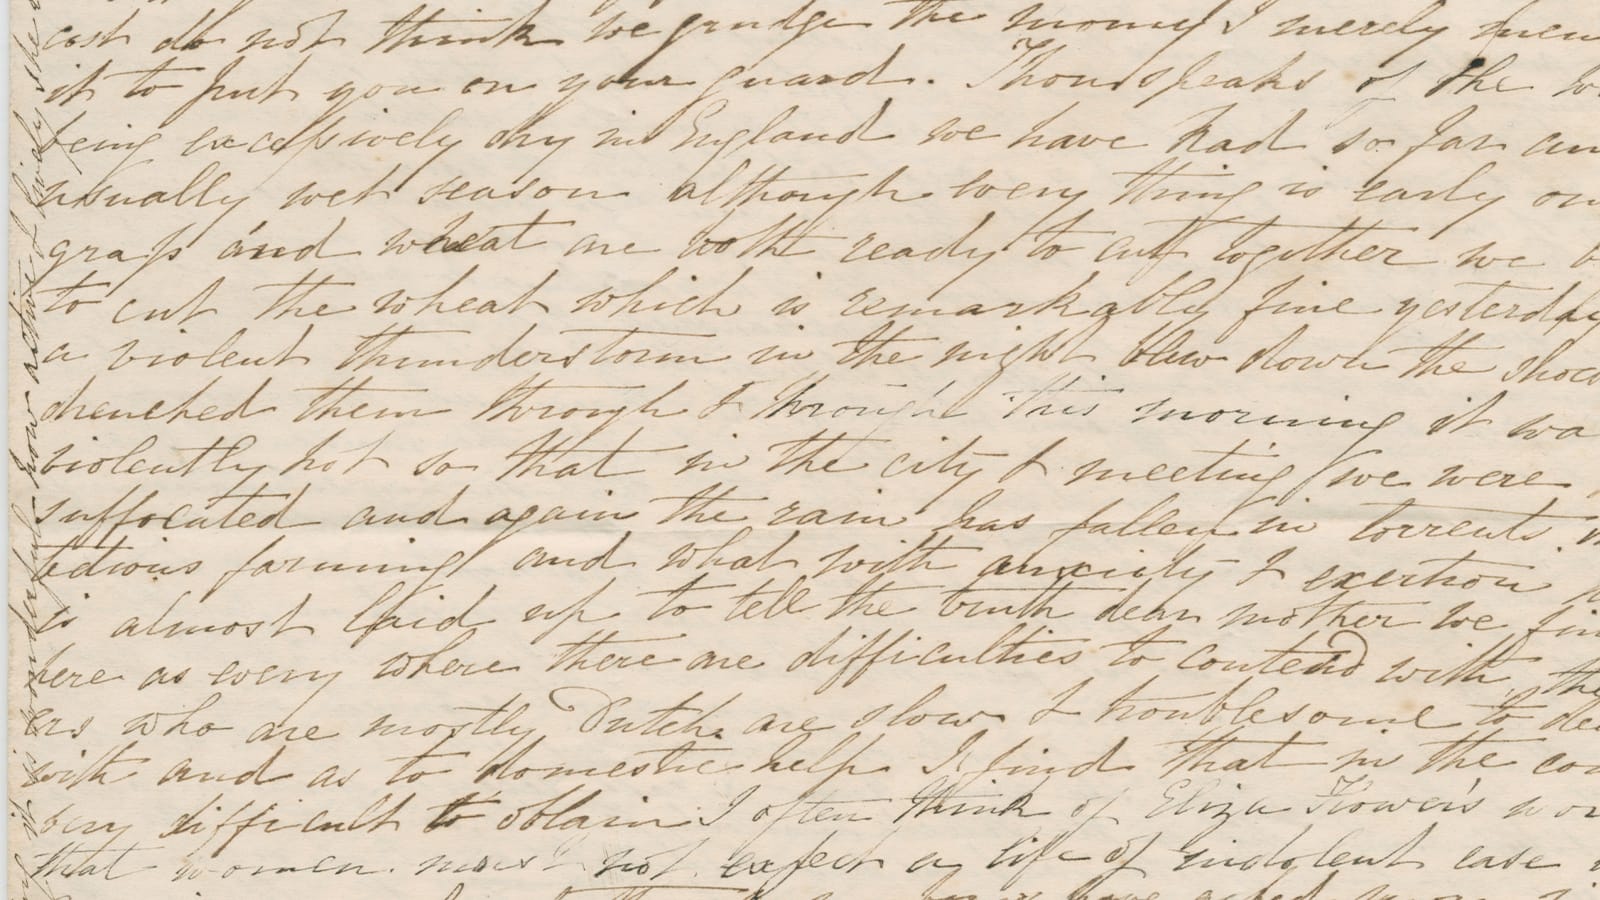 cost do not think we grudge the money I merely
it to put you on your guard. Thou speaks of the
being excessively dry in England we have had so far an
usually wet season although every thing is early our
grass and wheat are both ready to cut together we
to cut the wheat which is remarkably fine yesterday
a violent thunderstorm in the night blew down the
drenched them through & through this morning it wa
violently hot so that in the city & meeting we were
suffocated and again the rain has fallen in torrents.
tedious farming and what with anxiety & exertion
is almost laid up to tell the truth dear mother we
here as every where there are difficulties to contend with, the
ers who are mostly Dutch are slow & troublesome to
with and as to domestic help I find that in the
very difficult to obtain I often think of Eliza Flower's
that women must not expect a life of indolent ease
have asked
it is wonderful how active